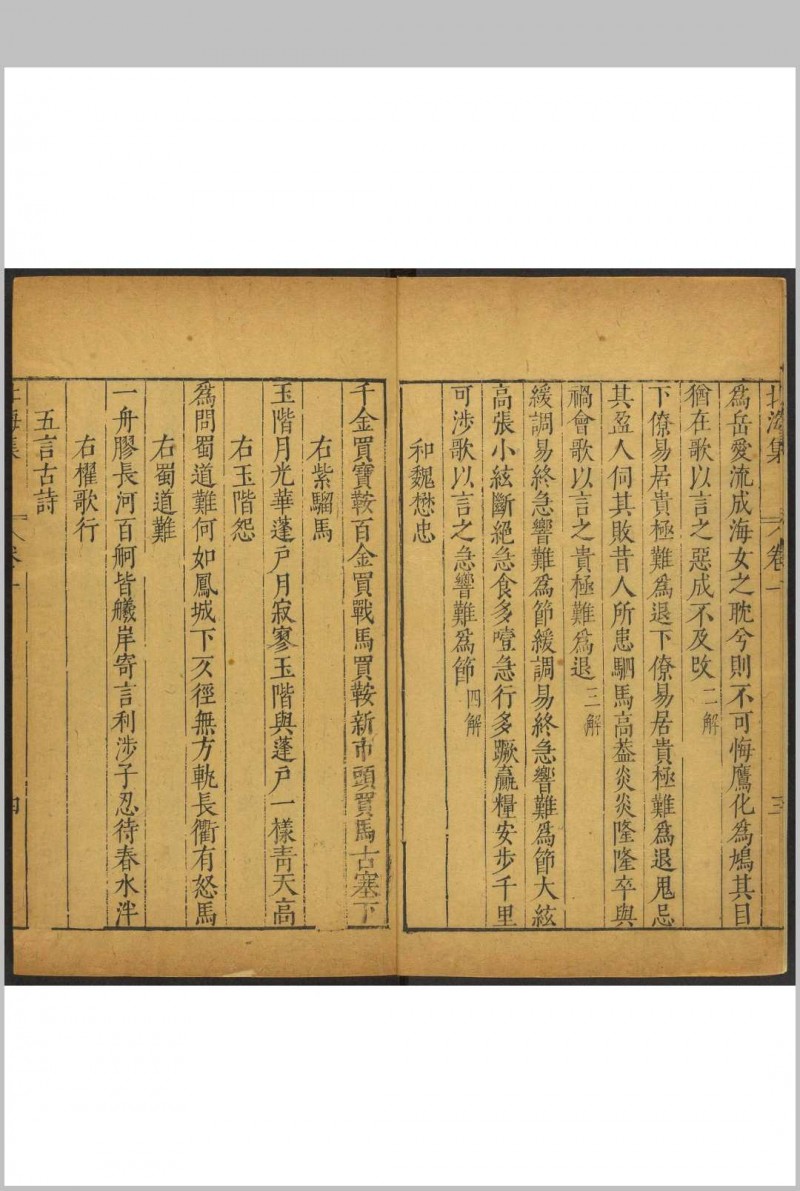 北海集 卷一 三
為岳愛流成海女之耽兮則不可悔鷹化為鳩其目
猶在歌以言之惡成不及改 二解
下僚易居貴極難為退下僚易居貴極難為退鬼忌
其盈人伺其敗昔人所患駟馬高蓋炎炎隆隆卒與
禍會歌以言之貴極難為退 三解
緩調易終急響難為節緩調易終急響難為節大絃
高張小絃斷絕急食多噎急行多蹶贏糧安步千里
可涉歌以言之急響難為節 四解
和魏懋忠
千金買寶鞍百金買戰馬買鞍新市頭買馬古塞下
右紫騮馬
玉階月光華蓬戶月寂寥玉階與蓬戶一樣青天高
右玉階怨
為問蜀道難何如鳳城下仄徑無方軌長衢有怒馬
右蜀道難
一舟膠長河百舸皆艤岸寄言利涉子忍待春水泮
右櫂歌行
五言古詩
北海集 卷一 四